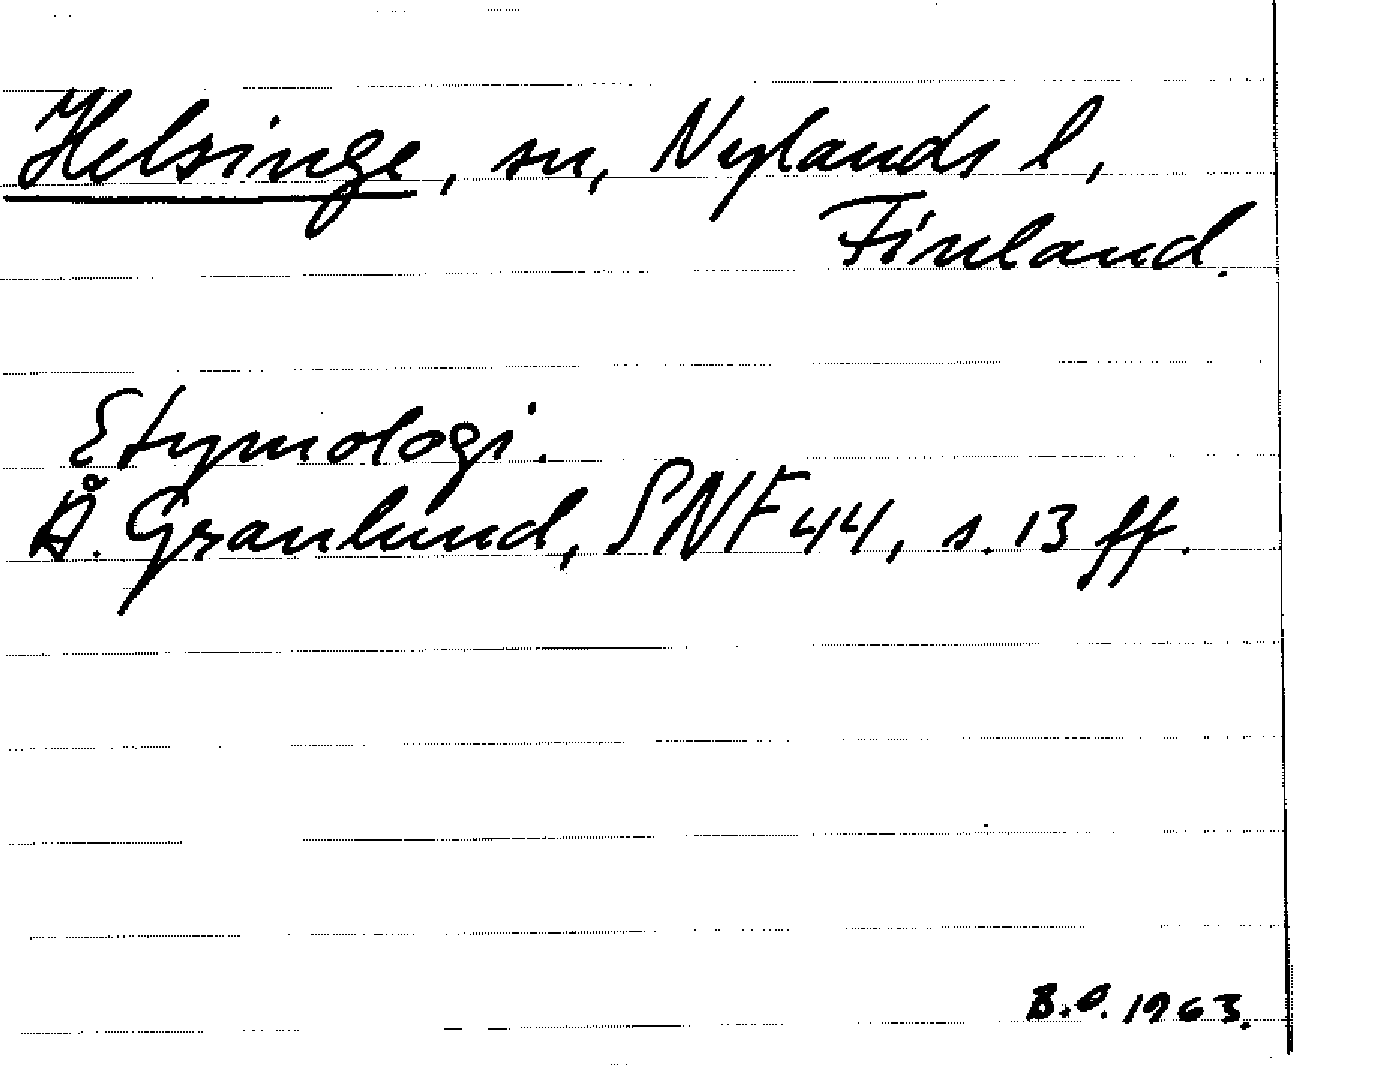 Helsinge, sn, Nylands l,
Finland.
Etymologi.
Å. Granlund, SNF 44, s. 13 ff.
B.O. 1963.